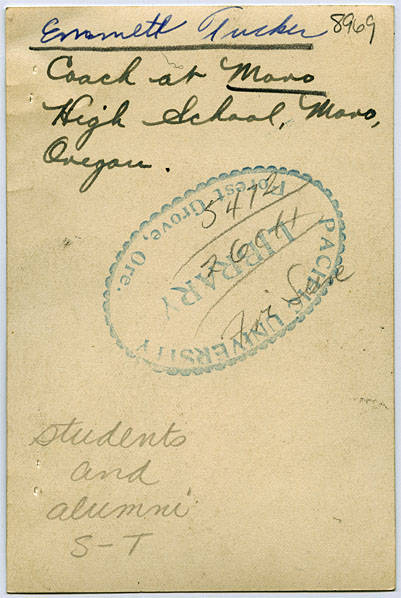 Emmett Tucker 8969
Coach at Moro
High School, Moro,
Oregon.
PACIFIC UNIVERSITY
LIBRARY
Forest Grove, Ore.
5472
students
and
alumni
S-T